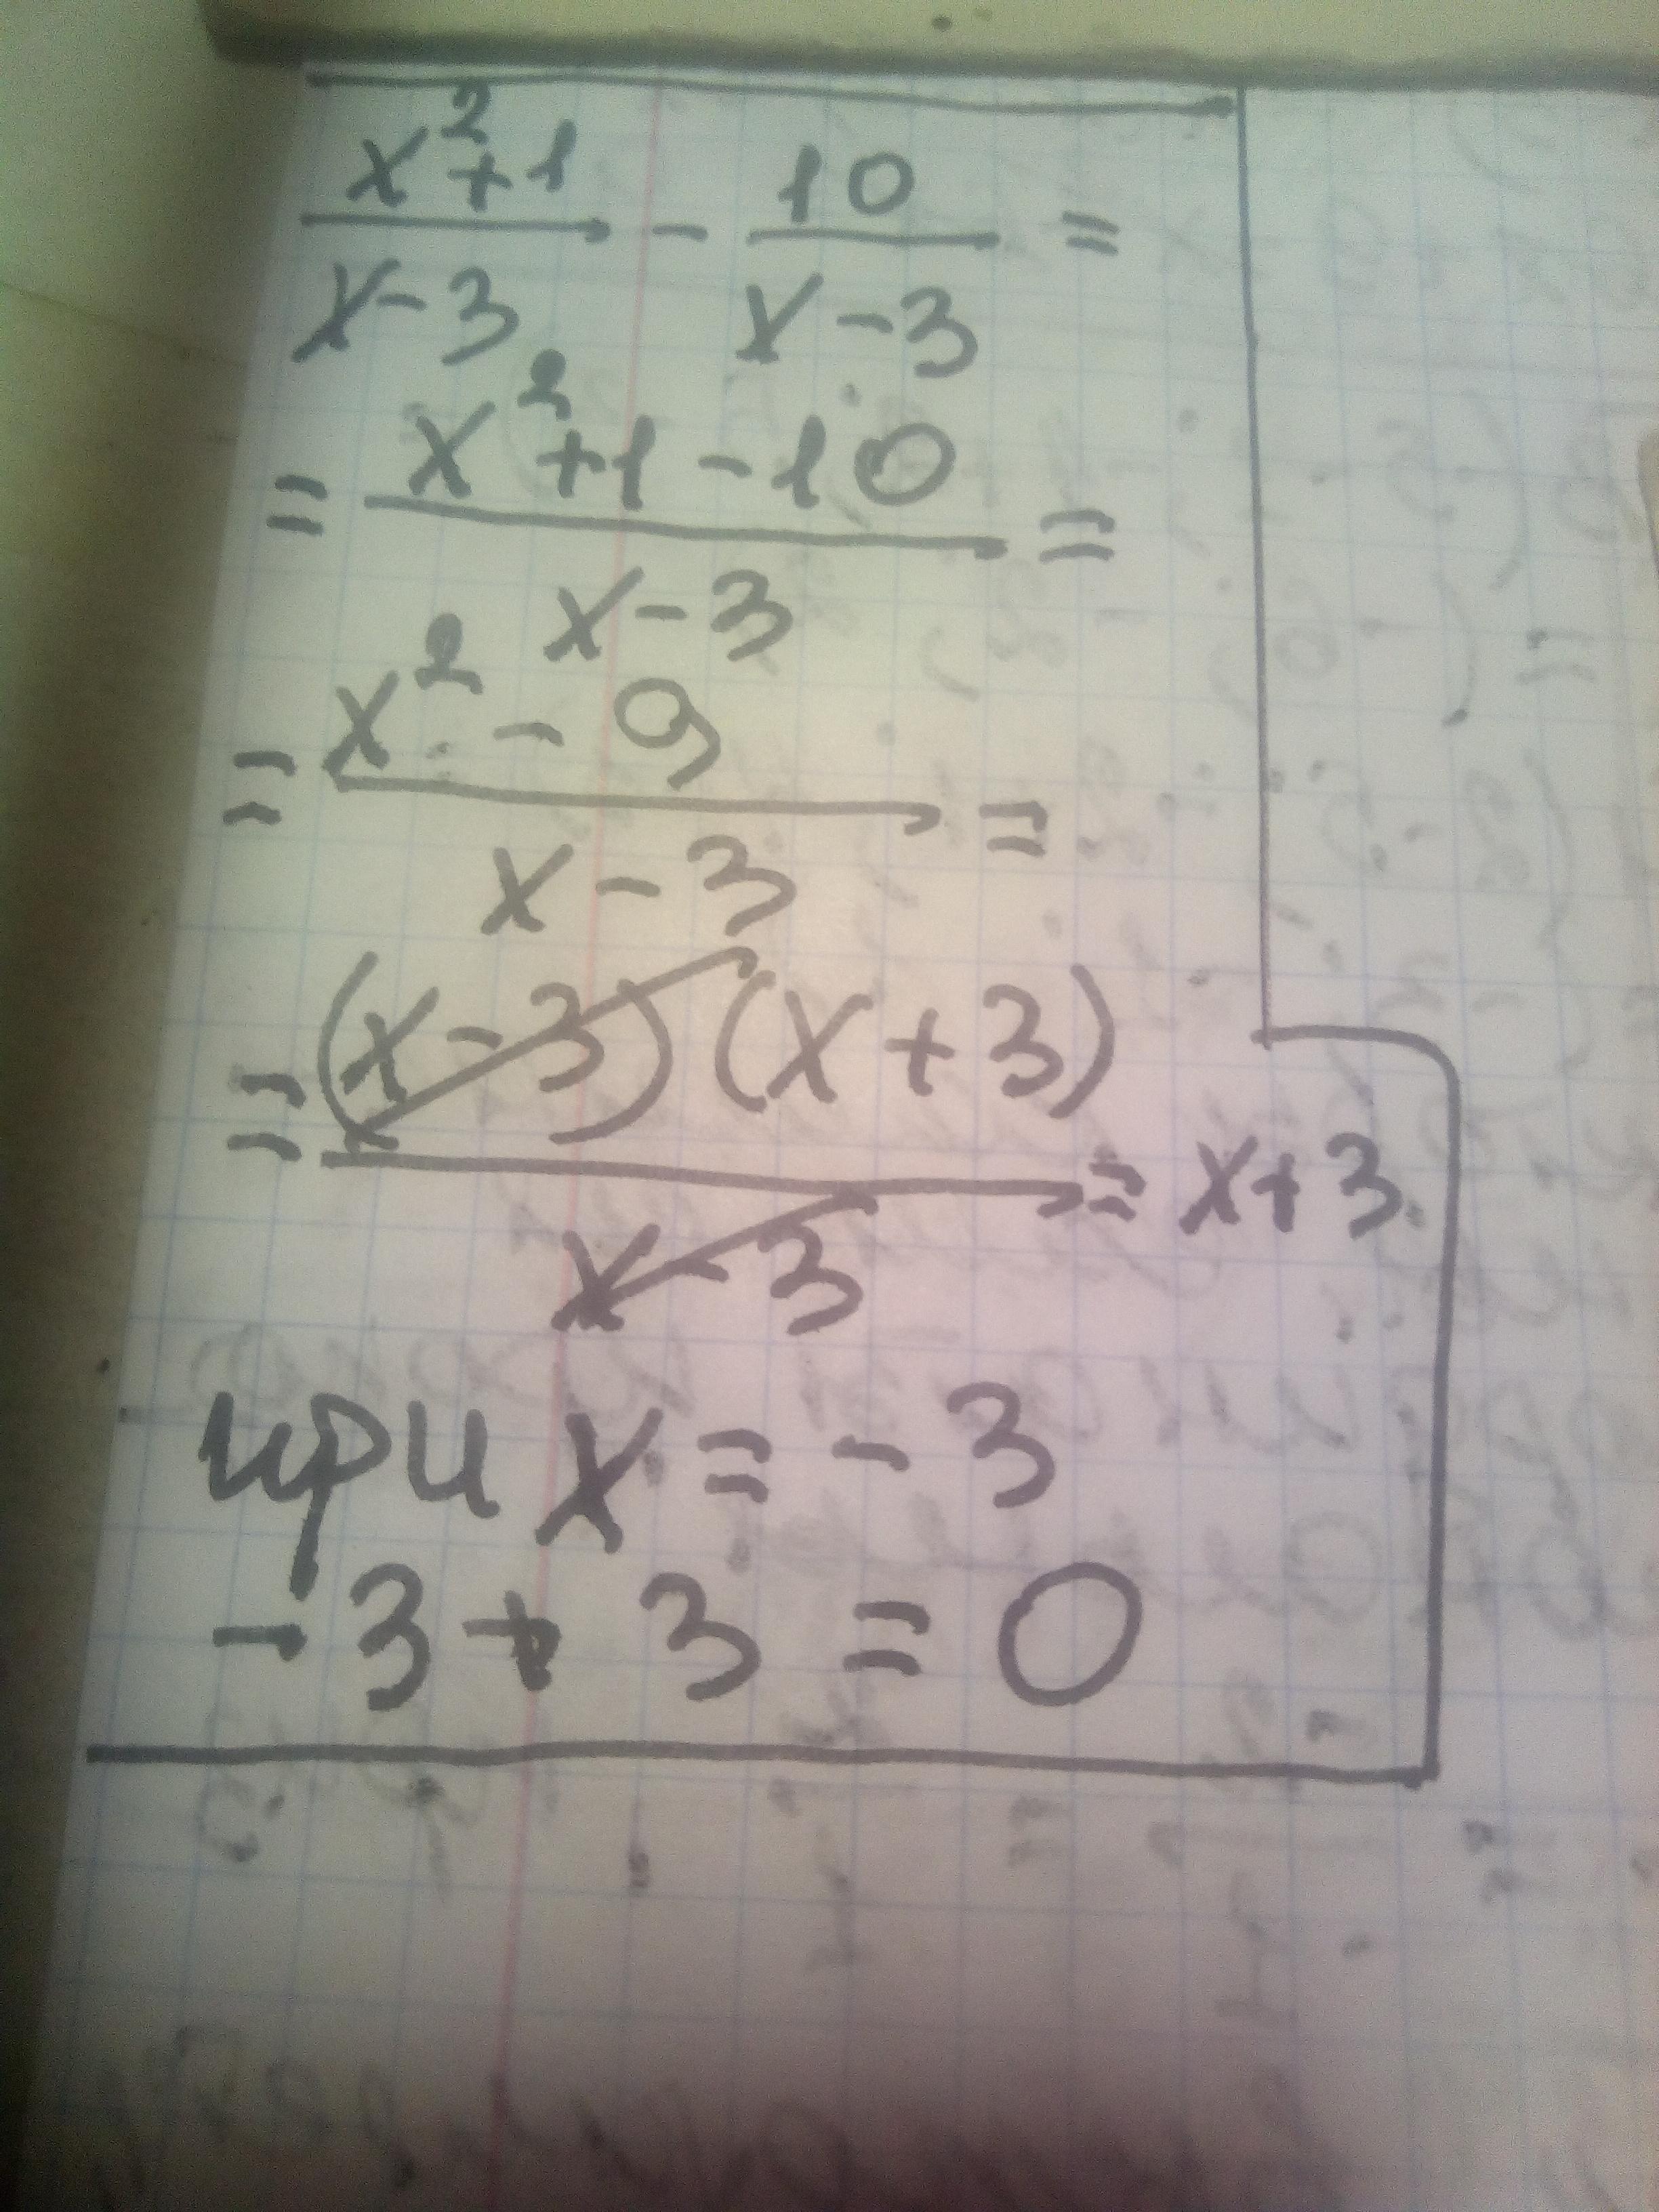 x²+1 / x-3 - 10 / x-3 =
= x²+1-10 / x-3 =
= x²-9 / x-3 =
= (x-3)(x+3) / x-3 = x+3
при x = -3
-3+3=0